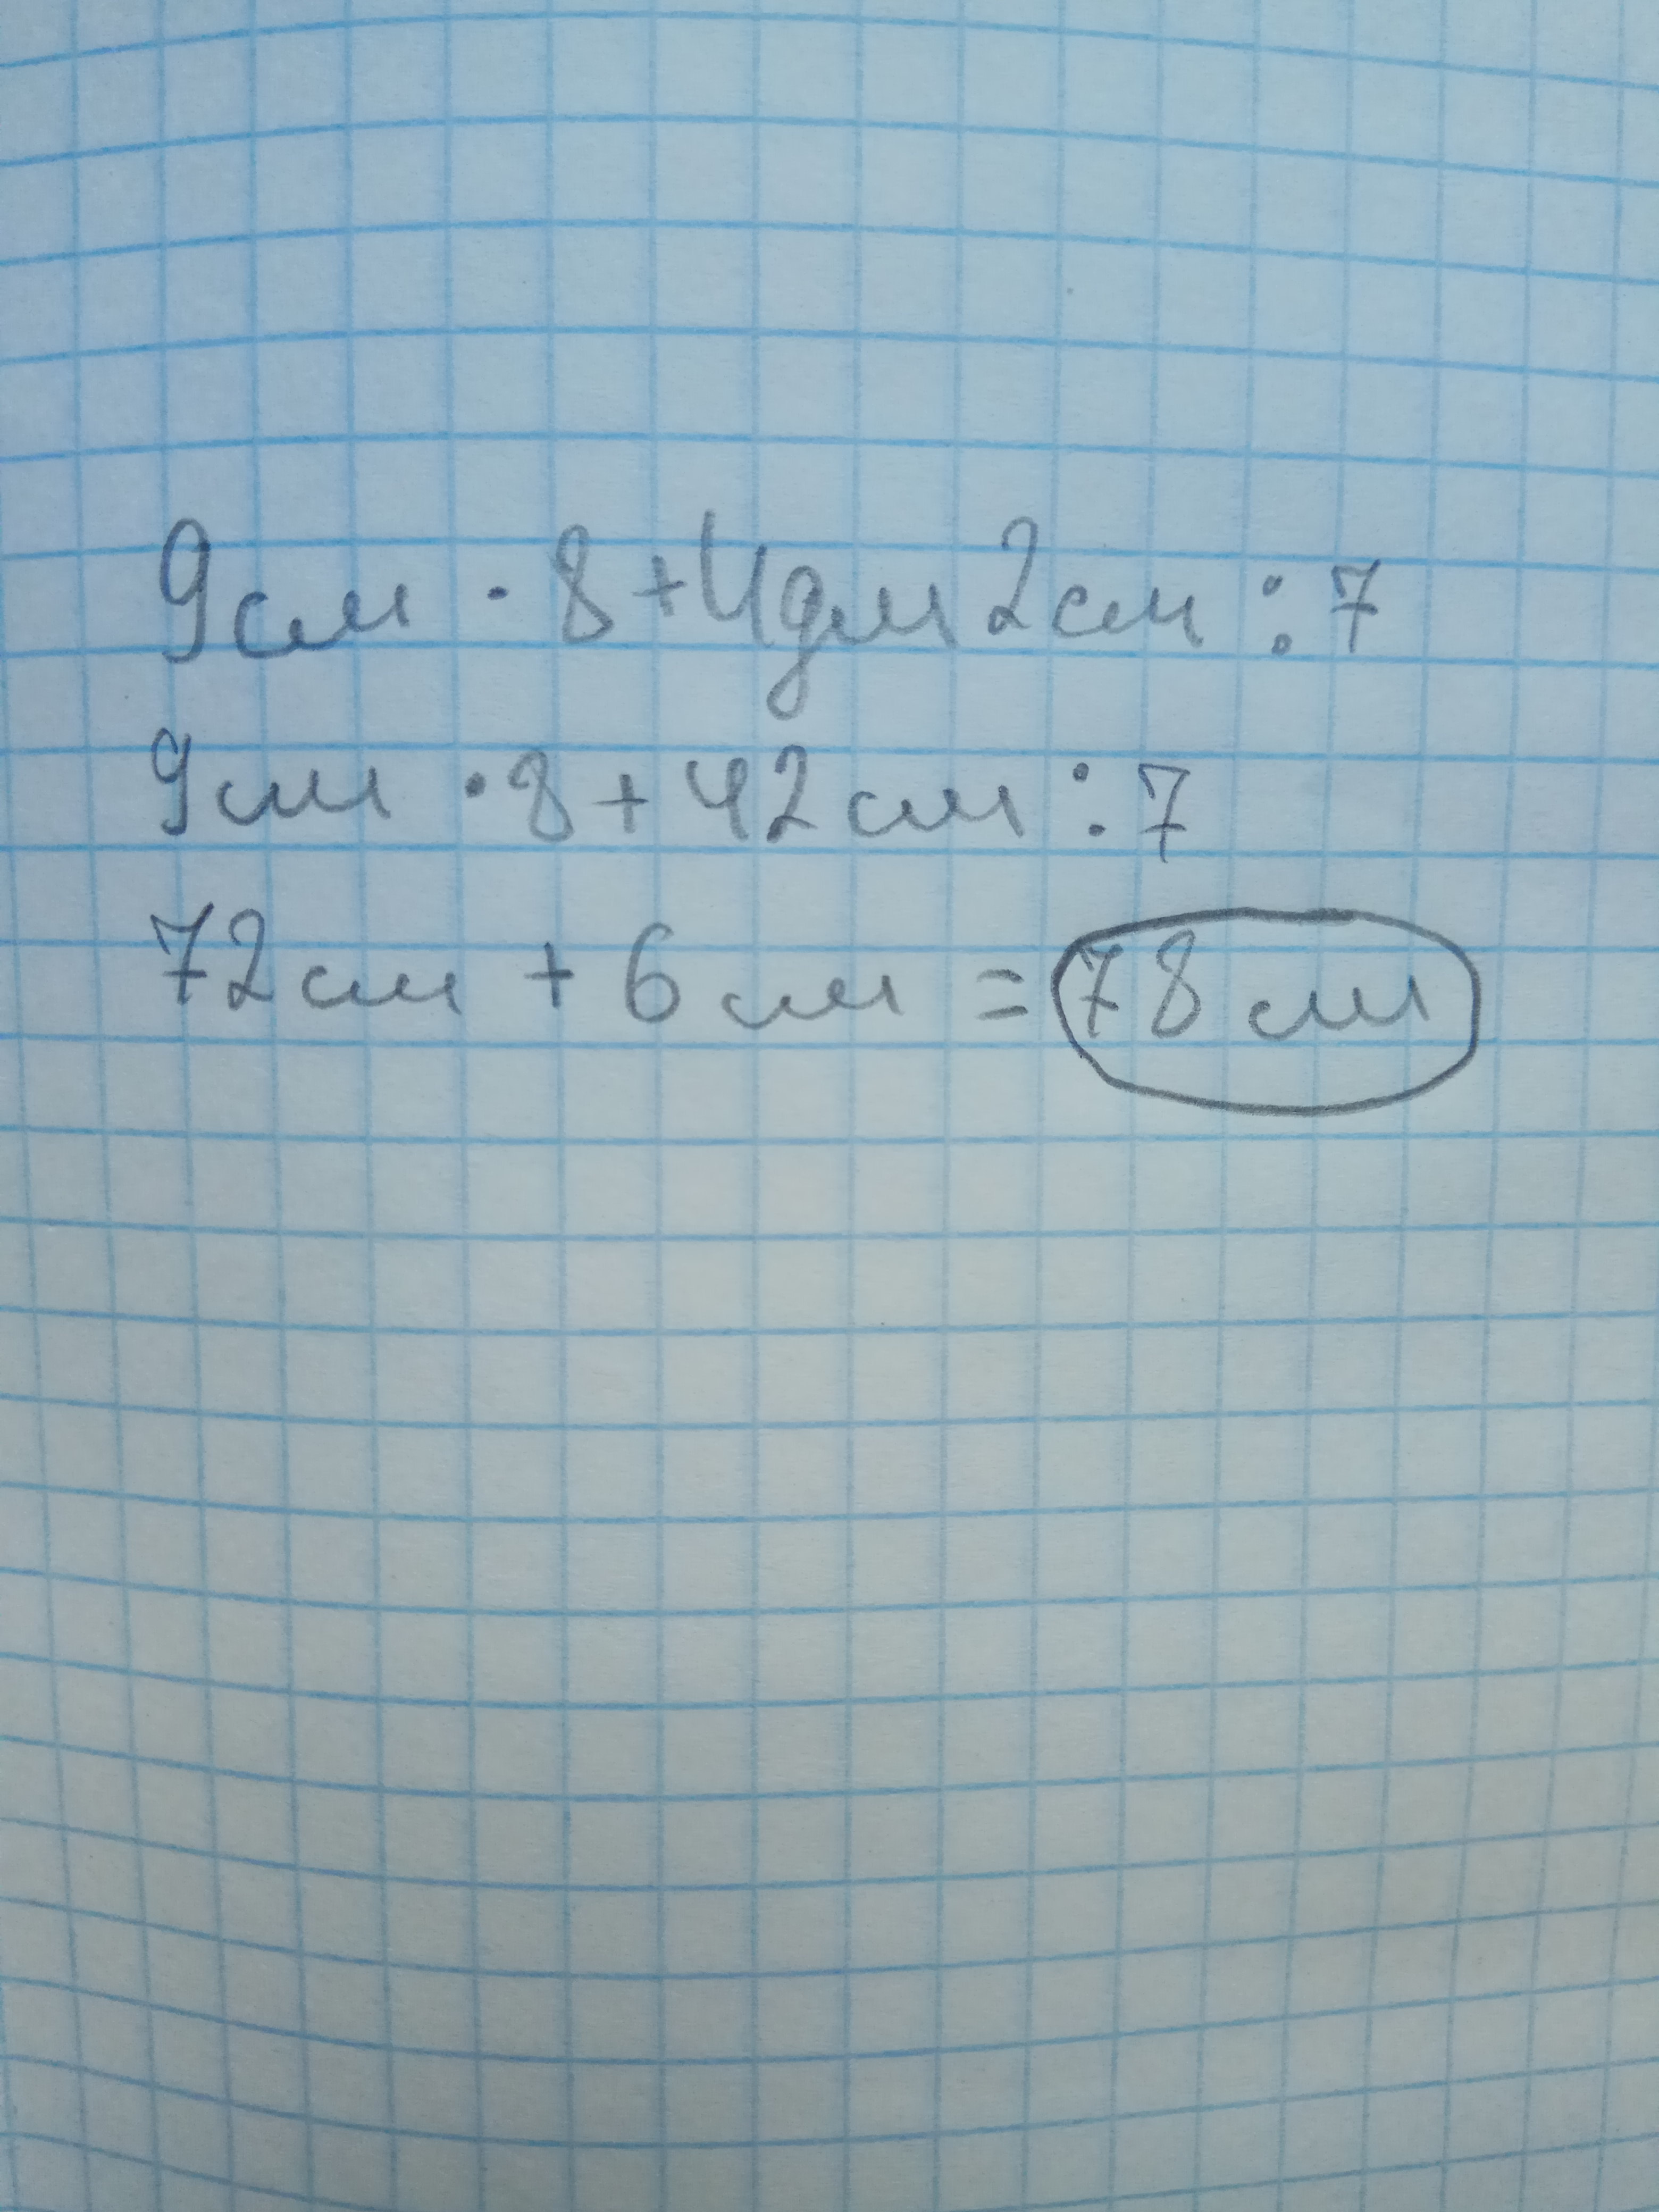 9см · 8 + 4дм 2см : 7
9см · 8 + 42см : 7
72см + 6см = 78см